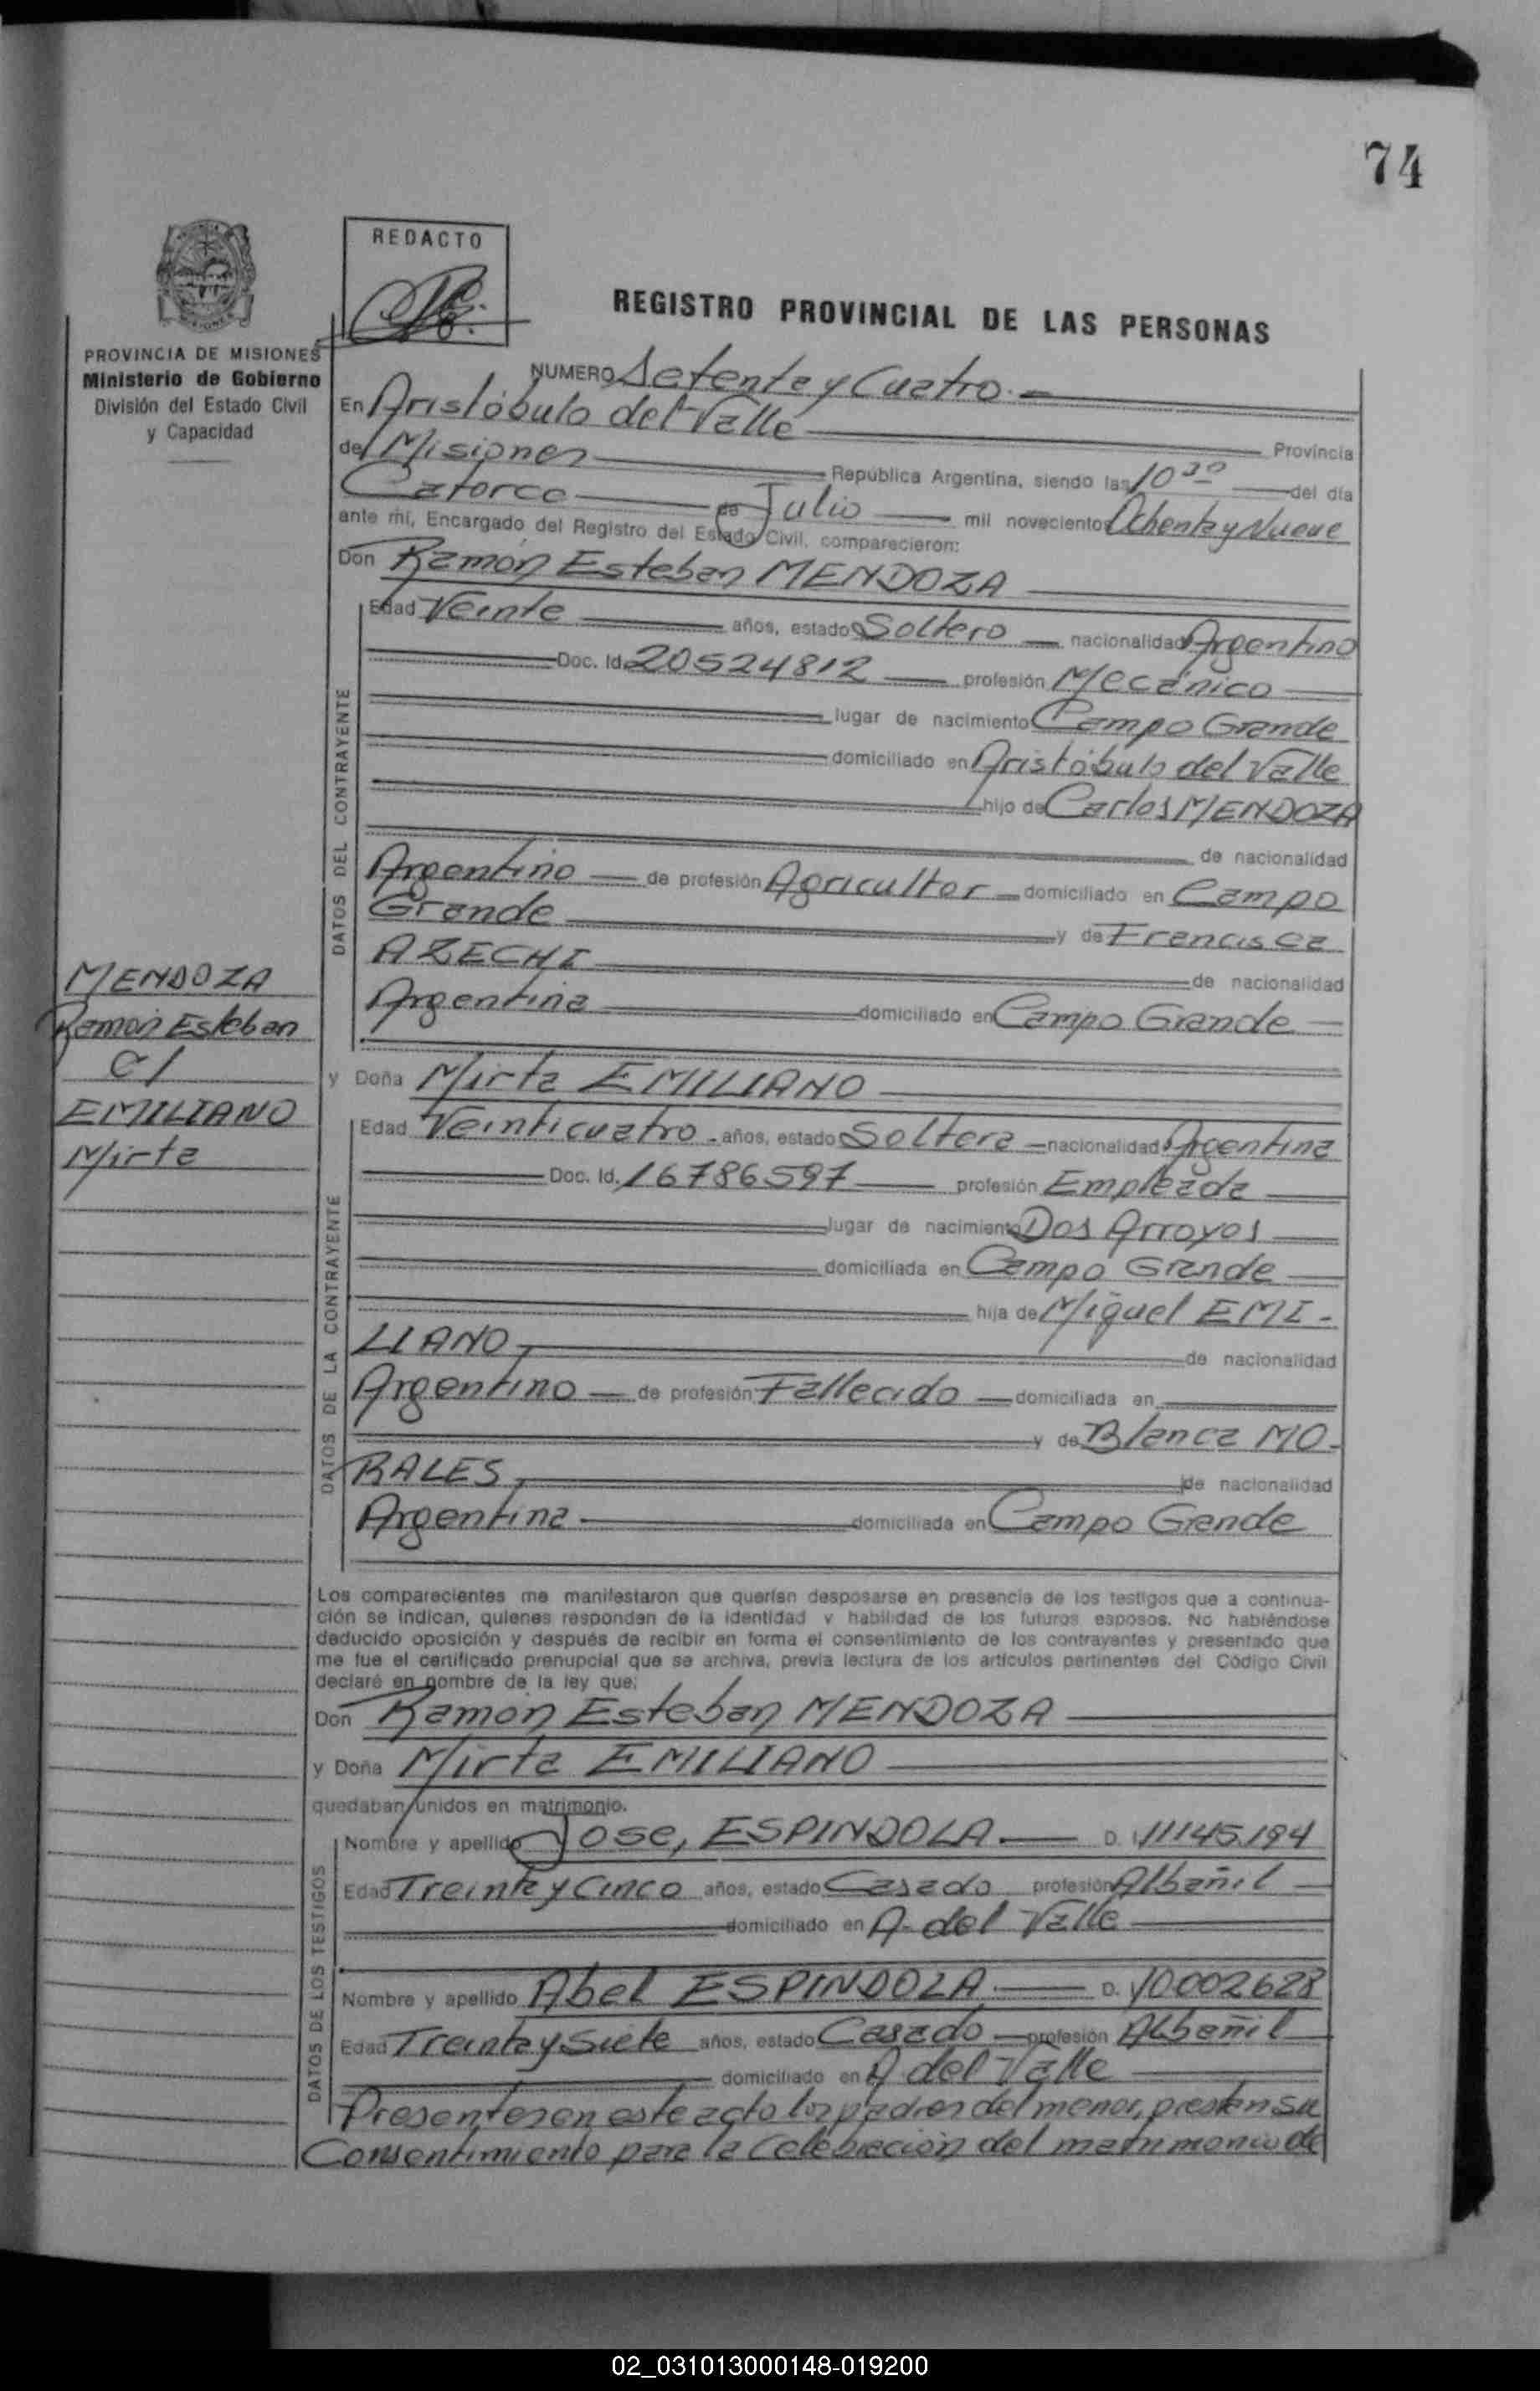 74
REDACTO
REGISTRO PROVINCIAL DE LAS PERSONAS
PROVINCIA DE MISIONES
Ministerio de Gobierno
División del Estado Civil
y Capacidad
MENDOZA
Ramón Esteban
c/
EMILIANO
Mirta
NUMERO Setenta y Cuatro.-
En Aristóbulo del Valle Provincia
de Misiones República Argentina, siendo las 10 30 del día
Catorce de Julio mil novecientos Ochenta y Nueve
ante mí, Encargado del Registro del Estado Civil, comparecieron:
Don Ramón Esteban MENDOZA
DATOS DEL CONTRAYENTE
Edad Veinte años, estado Soltero nacionalidad Argentino
Doc. Id. 20524812 profesión Mecánico
lugar de nacimiento Campo Grande
domiciliado en Aristóbulo del Valle
hijo de Carlos MENDOZA
de nacionalidad
Argentino de profesión Agricultor domiciliado en Campo
Grande y de Francisca
AZECHI de nacionalidad
Argentina domiciliado en Campo Grande
y Doña Mirta EMILIANO
DATOS DE LA CONTRAYENTE
Edad Veinticuatro años, estado Soltera nacionalidad Argentina
Doc. Id. 16786597 profesión Empleada
lugar de nacimiento Dos Arroyos
domiciliada en Campo Grande
hija de Miguel EMI-
LIANO, de nacionalidad
Argentino de profesión Fallecido domiciliada en
y de Blanca MO-
RALES, de nacionalidad
Argentina domiciliada en Campo Grande
Los comparecientes me manifestaron que querían desposarse en presencia de los testigos que a continua-
ción se indican, quienes responden de la identidad y habilidad de los futuros esposos. No habiéndose
deducido oposición y después de recibir en forma el consentimiento de los contrayentes y presentado que
me fue el certificado prenupcial que se archiva, previa lectura de los artículos pertinentes del Código Civil
declaré en nombre de la ley que:
Don Ramón Esteban MENDOZA
y Doña Mirta EMILIANO
quedaban unidos en matrimonio.
DATOS DE LOS TESTIGOS
Nombre y apellido Jose, ESPINDOLA D. I. 11145.194
Edad Treinta y Cinco años, estado Casado profesión Albañil
domiciliado en A. del Valle
Nombre y apellido Abel ESPINDOLA D. 10002628
Edad Treinta y Siete años, estado Casado profesión Albañil
domiciliado en A. del Valle
Presentes en este acto los padres del menor, prestan su
Consentimiento para la Celebración del matrimonio de
02_031013000148-019200